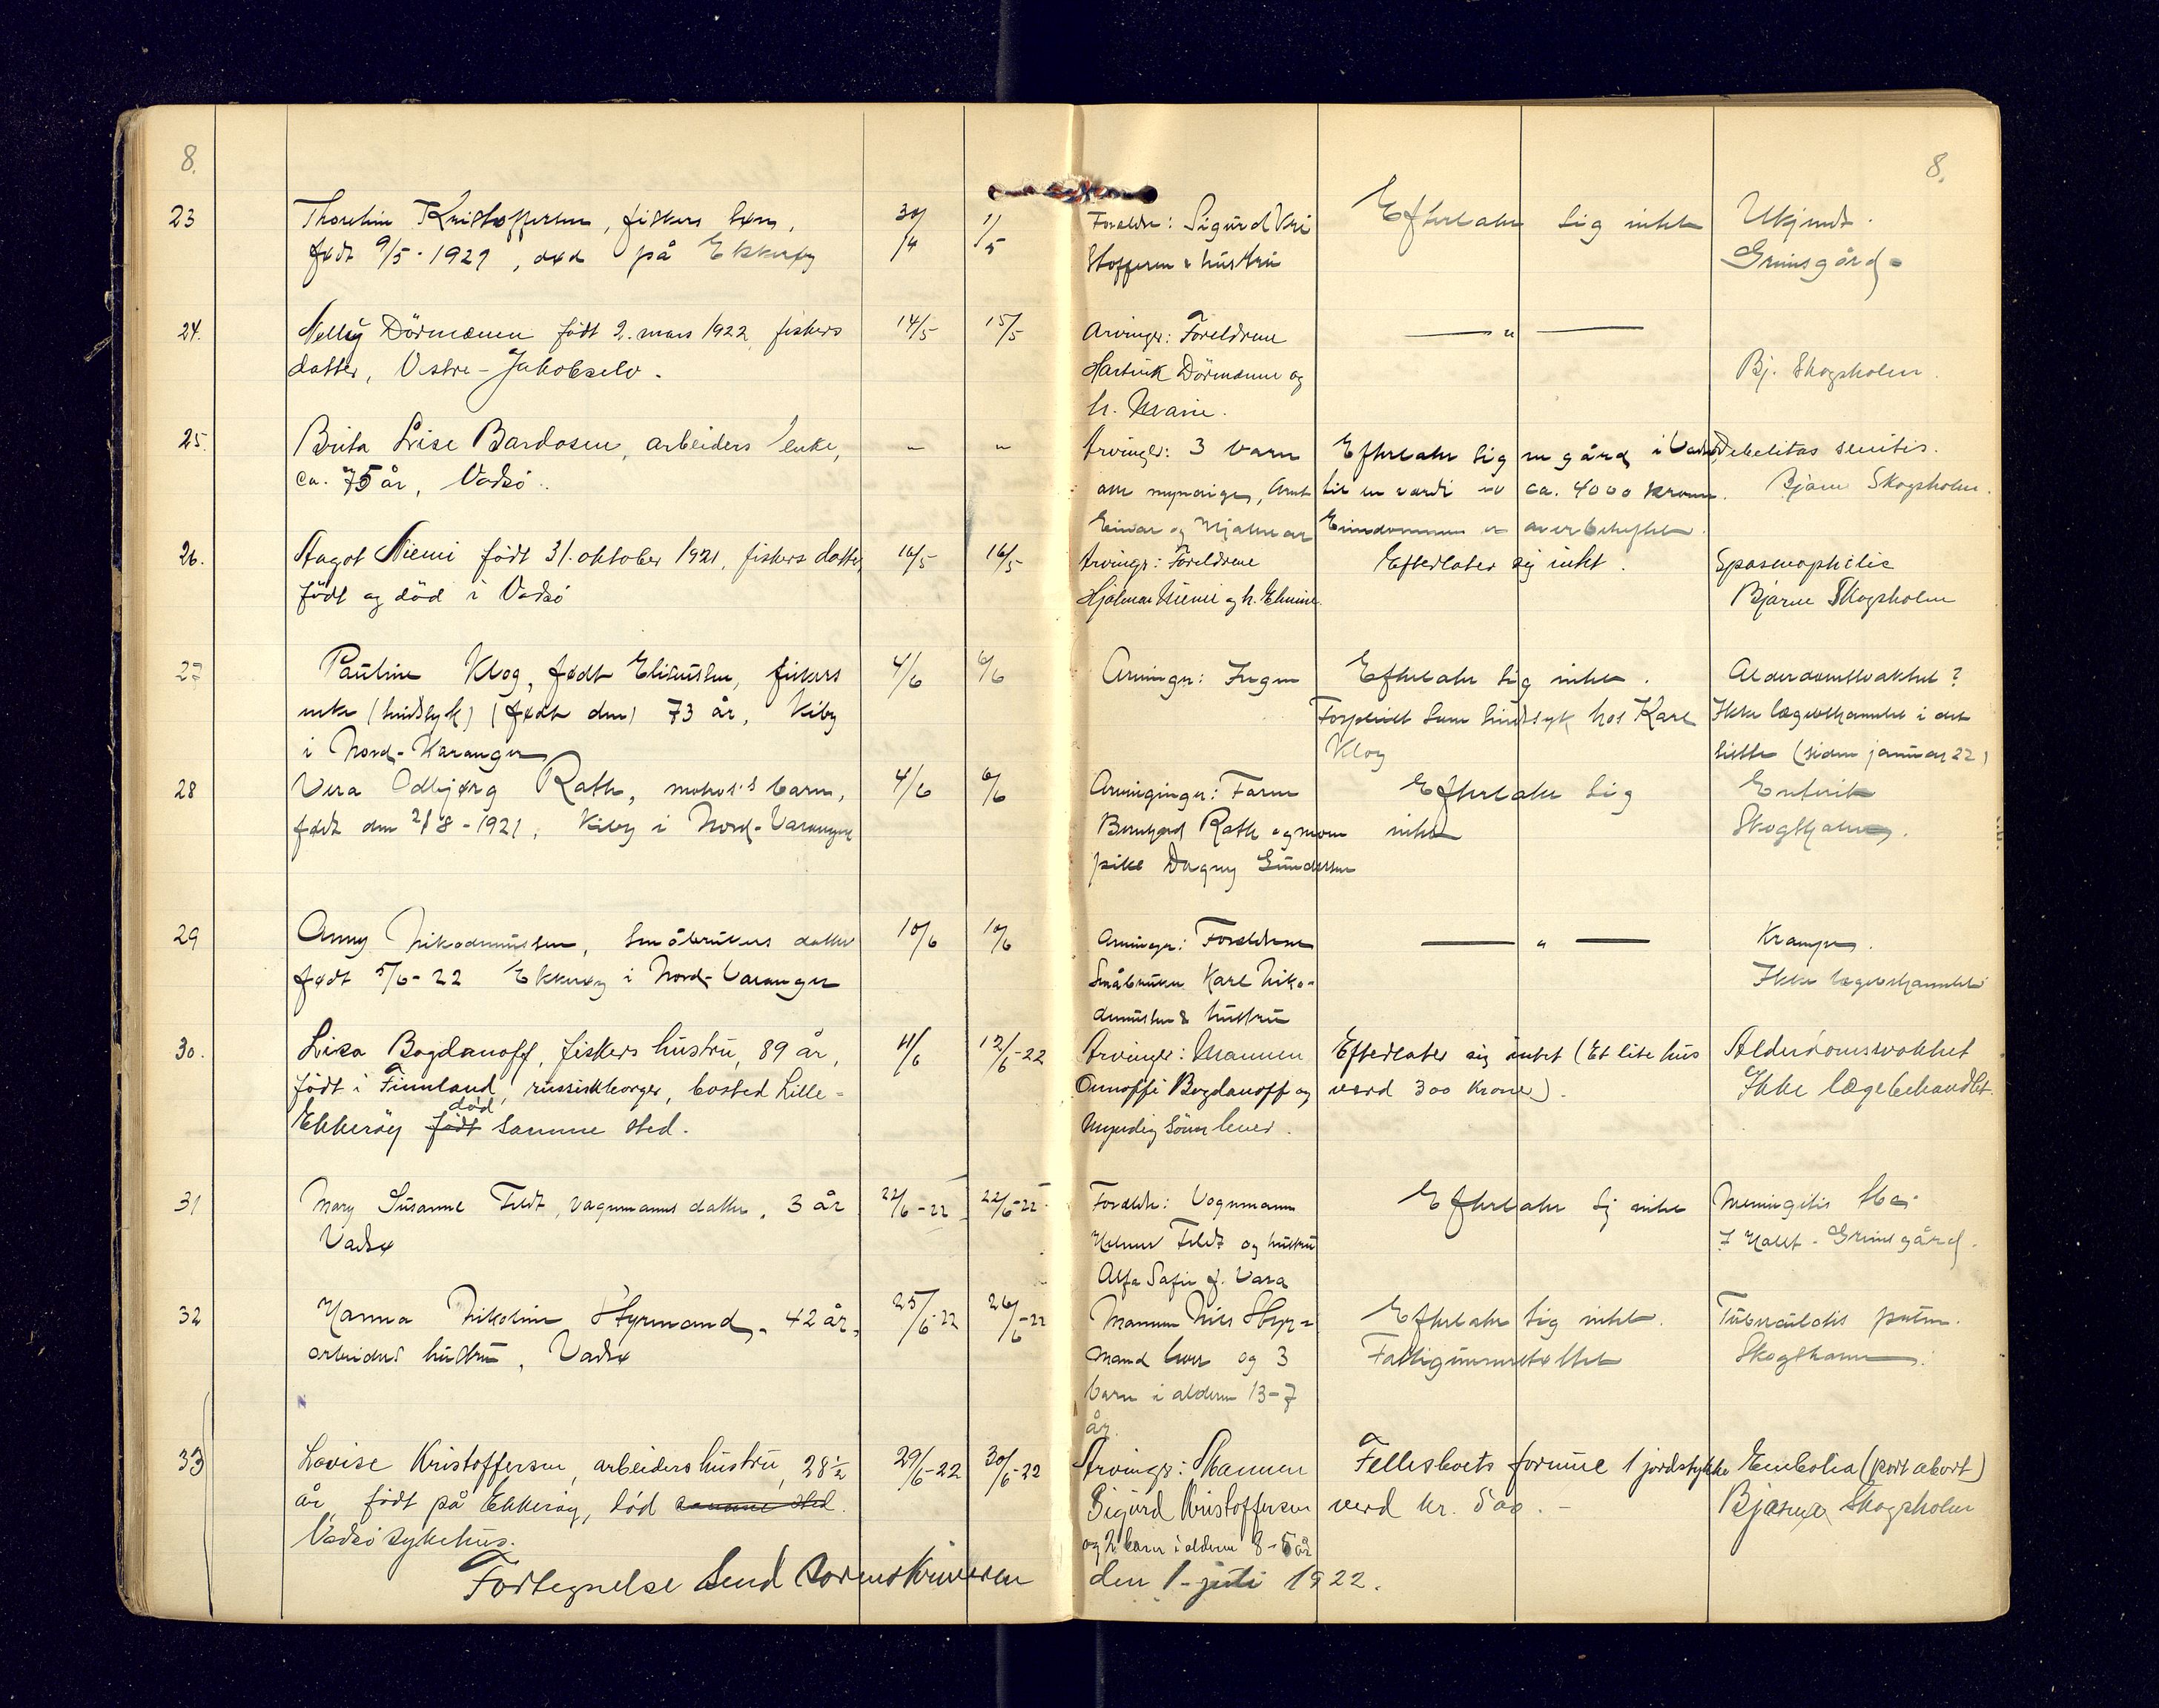 8.
8.
23
Thorstein Kristoffersen, fiskers søn,
født 9/5-1921, død på Ekkerøy
30/4
1/5
Foreldre: Sigurd Kri
stoffersen & hustru
Efterlater sig intet
Ukjendt.
Grimsgård
24.
Nelly Dörmænen født 2. mars 1922, fiskers
datter, Vestre-Jakobselv.
14/5
15/5
Arvinger: Foreldrene
Hartvik Dörmænen og
h. Marie.
— " —
Bj. Skogsholm.
25.
Brita Lise Bardosen, arbeiders enke,
ca. 75 år, Vadsö.
"
"
Arvinger: 3 barn
alle myndige,
Einar og Hjalmar
Efterlater sig en gård i Vadsø
til en værdi av ca. 4000 kroner.
Eiendommen er
Debelitas senilis.
Bjarne Skogsholm.
26.
Aagot Niemi født 31. oktober 1921, fiskers datter,
født og död i Vadsö
16/5
16/5
Arvinger: Foreldrene
Hjalmar Niemi og h. Elmine.
Efterlater sig intet.
Spasmophilie
Bjarne Skogsholm
27
Pauline Klog, født Eliassen, fiskers
enke (sindssyk) (født den) 73 år, Kiby
i Nord-Varanger
4/6
6/6
Arvinger: Ingen
Efterlater sig intet.
Forpleiet som sindssyk hos Karl
Klog
Alderdomssvakhet?
Ikke lægebehandlet i det
siste (siden januar 22)
28
Vera Odbjørg Rath, barn,
født den 21/8-1921, Kiby i Nord-Varanger
4/6
6/6
Arvinger: Faren
Bernhard Rath og moren
pike Dagny Gundersen
Efterlater sig
intet
Enterit
Skogsholm.
29
Anny Nikodemussen, småbrukers datter
født 5/6-22 Ekkerøy i Nord-Varanger
10/6
10/6
Arvinger: Foreldrene
Småbruker Karl Niko-
demussen & hustru
— " —
Krampe.
Ikke lægebehandlet
30.
Lisa Bogdanoff, fiskers hustru, 89 år,
født i Finnland, russisk borger, bosted Lille-
Ekkeröy født död samme sted.
11/6
12/6-22
Arvinger: Mannen
Onnoffi Bogdanoff og
Myndig sönn lever.
Efterlater sig intet (Et lite hus
verd 300 kroner).
Alderdomsvakhet
Ikke lægebehandlet.
31
Mary Susanne Feldt, vognmanns datter, 3 år
Vadsø
22/6-22
22/6-22
Foreldre: Vognmann
Helmer Feldt og hustru
Alfa Safie f. Vara
Efterlater sig intet
Meningitis tbc.
F Holst-Grimsgård.
32
Hanna Nikoline Styrmand, 42 år,
arbeiders hustru, Vadsø
25/6-22
26/6-22
Mannen Nils Styr-
mand lever og 3
barn i alderen 13-7
år.
Efterlater sig intet.
Fattigunderstøttet
Tuberculosis pulm.
Skogsholm.
33
Lovise Kristoffersen, arbeiders hustru, 28½
år, født på Ekkeröy, död samme sted.
Vadsö sykehus.
29/6-22
30/6-22
Arvinger: Mannen
Sigurd Kristoffersen
og 2 barn i alderen 8-5 år
Fellesboets formue 1 jordstykke
verd kr. 500.-
Embolia (post abort)
Bjarne Skogsholm
Fortegnelse send sorenskriveren den 1-juli 1922.